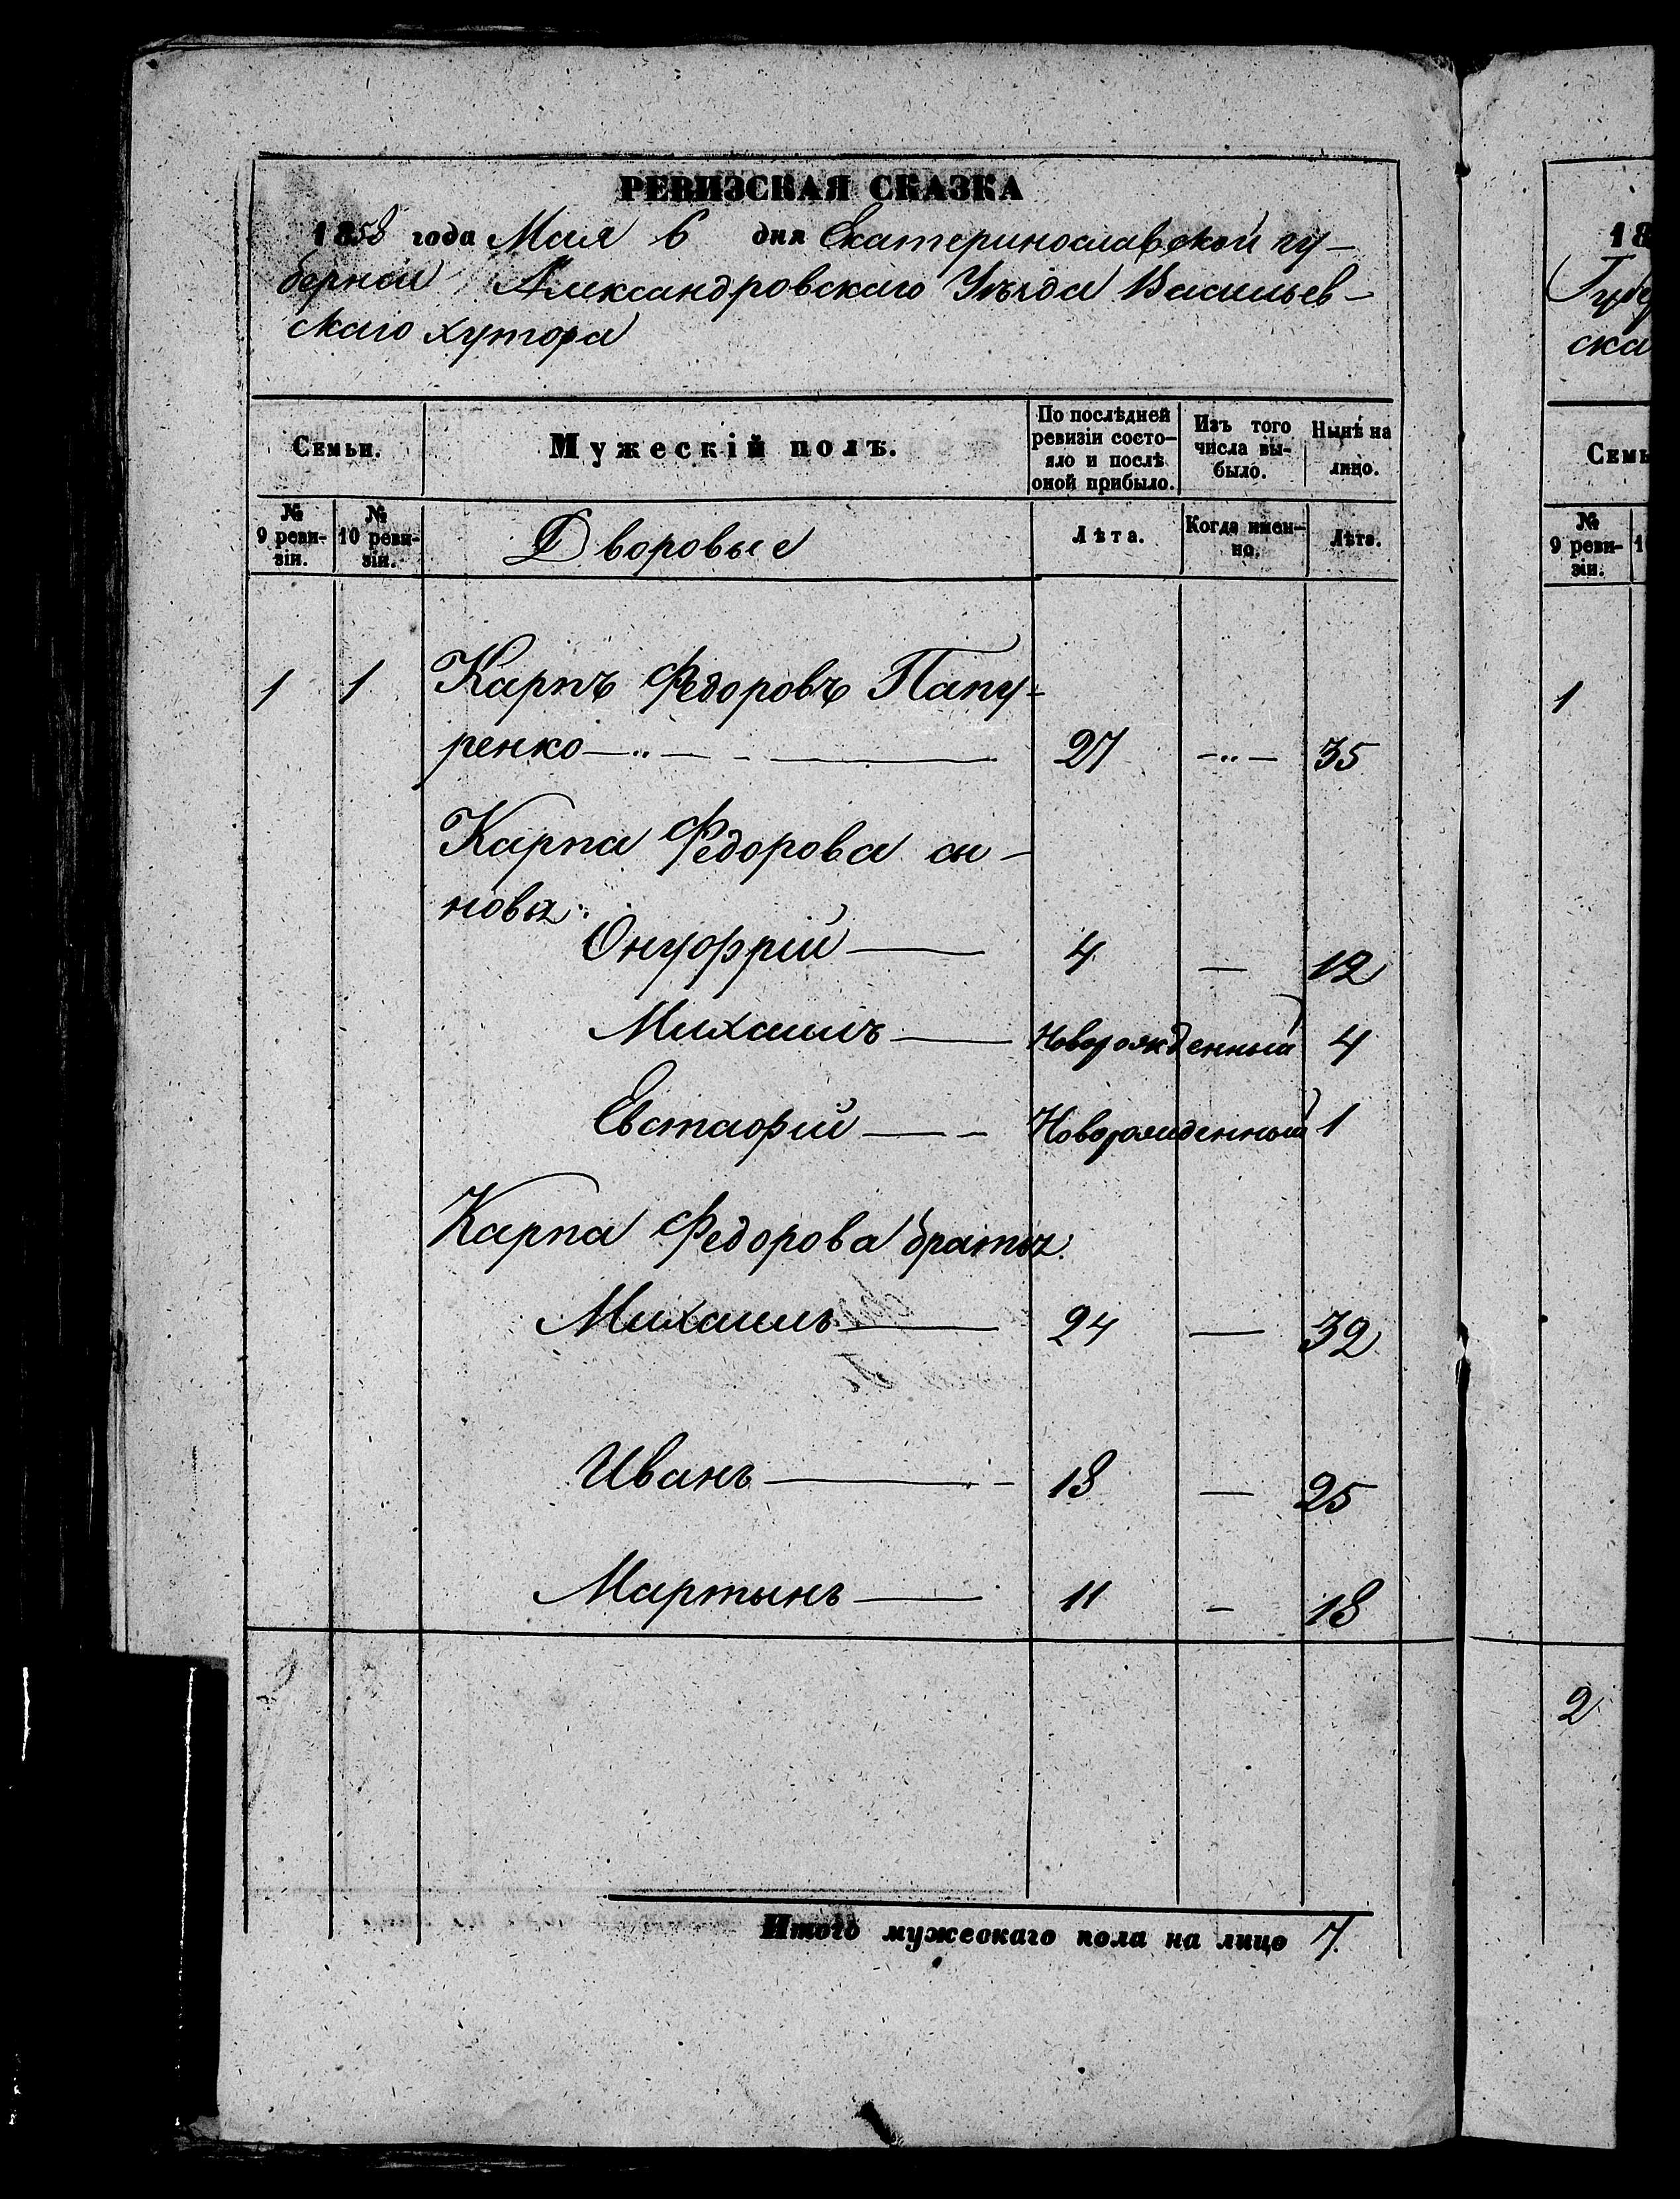 РЕВИЗСКАЯ СКАЗКА
1858 года Мая 6 дня Екатеринославской гу-
берніи Александровскаго Уѣзда Васильев-
скаго хутора
Семьи.
Мужескій полъ.
По послѣдней ревизіи состо-
яло и послѣ оной прибыло.
Изъ того числа вы-
было.
Нынѣ на лицо.
№ 9 реви-
зіи.
№ 10 реви-
зіи.
Дворовые
Лѣта.
Когда имен-
но.
Лѣта.
1 1 Карпъ Федоровъ Папу-
ренко 27 — 35
Карпа Федорова сы-
новья:
Онуфрій — 4 — 12
Михаилъ — Новорожденный 4
Евстафій — Новорожденный 1
Карпа Федорова братья.
Михаилъ — 24 — 32
Иванъ — 18 — 25
Мартынъ — 11 — 18
Итого мужескаго пола на лицо 7.
18
Губер
ска
Семь
№
9 реви-
зіи.
1
2